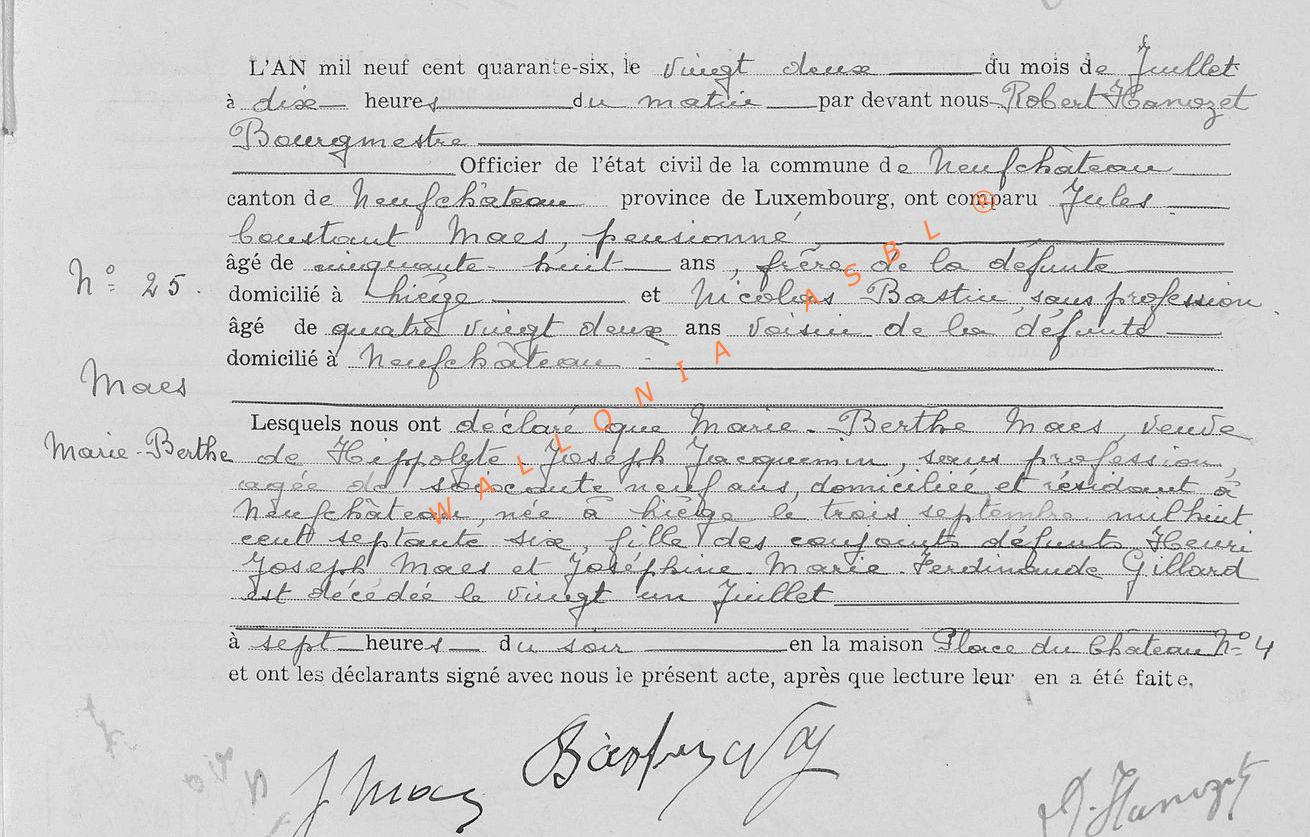 L'AN mil neuf cent quarante-six, le vingt deux du mois de Juillet
à dix heures du matin par devant nous Robert Hanozet
Bourgmestre
Officier de l'état civil de la commune de Neufchâteau
canton de Neufchâteau province de Luxembourg, ont comparu Jules
Constant Maes, pensionné,
âgé de cinquante-huit ans, frère de la défunte
N° 25.
domicilié à Liège et Nicolas Bastin sans profession
âgé de quatre vingt deux ans voisin de la défunte
domicilié à Neufchâteau
Maes
Marie-Berthe
Lesquels nous ont déclaré que Marie-Berthe Maes, veuve
de Hippolyte Joseph Jacquemin, sans profession,
agée de soixante neuf ans, domiciliée et résidant à
Neufchâteau, née à Liège le trois septembre mil huit
cent septante six, fille des conjoints défunts Henri
Joseph Maes et Joséphine Marie Ferdinande Gillard
est décédée le vingt un Juillet
à sept heures du soir en la maison Place du Château N° 4
et ont les déclarants signé avec nous le présent acte, après que lecture leur en a été faite.
J Maes
R. Hanozet
WALLONIA ASBL ®